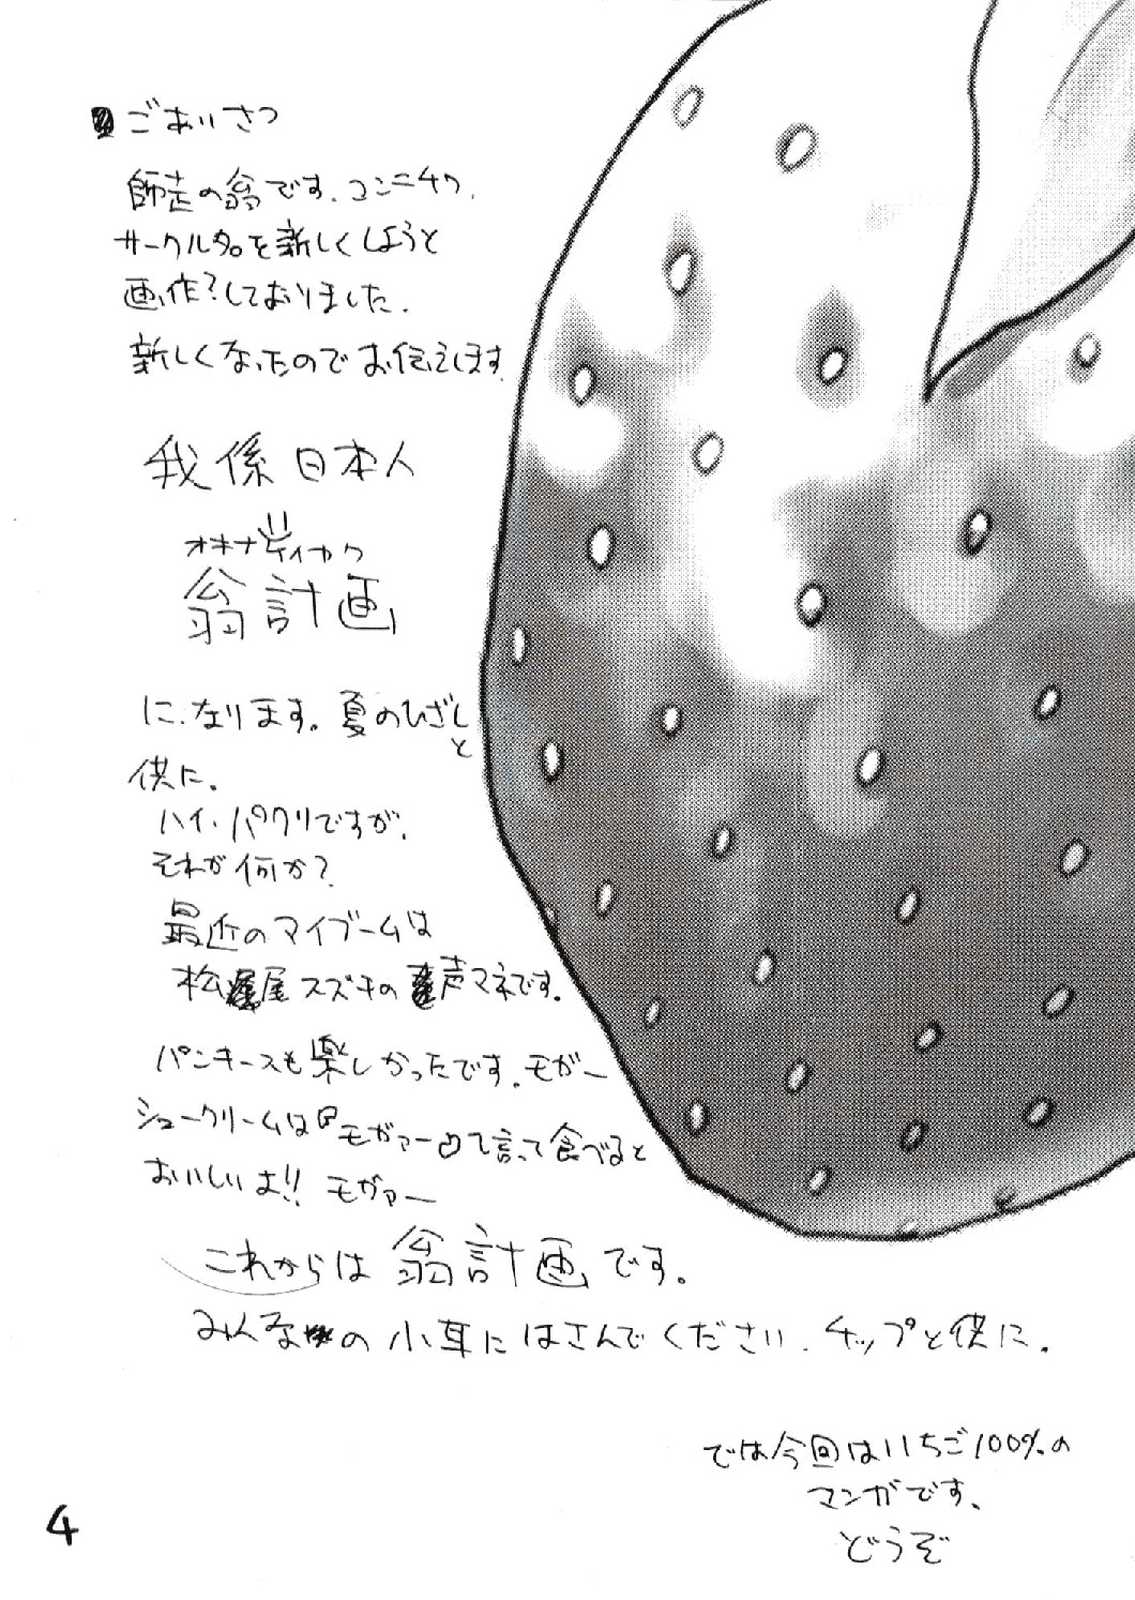 ごあいさつ
師走の翁です、コンニチワ、
サークル名を新しくしようと
画作?しておりました、
新しくなったのでお伝えします
我係日本人
オキナケイカク
翁計画
になります。夏のひざしと
供に。
ハイ、パクリですが、
それが何か?
最近のマイブームは
松尾スズキの声マネです。
パンキースも楽しかったです、モガー
シュークリームは『モガァー』て言って食べると
おいしいよ!! モガァー
これからは翁計画です。
みんなの小耳にはさんでください、チップと供に。
では今回はいちご100%の
マンガです、
どうぞ
4